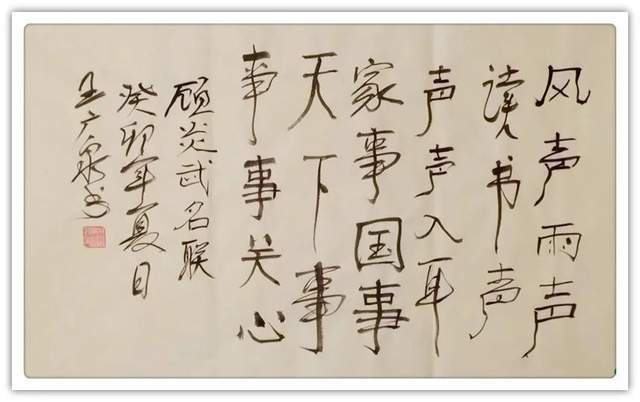 风声雨声
读书声
声声入耳
家事国事
天下事
事事关心
顾炎武名联
癸卯年夏日
王广泉书